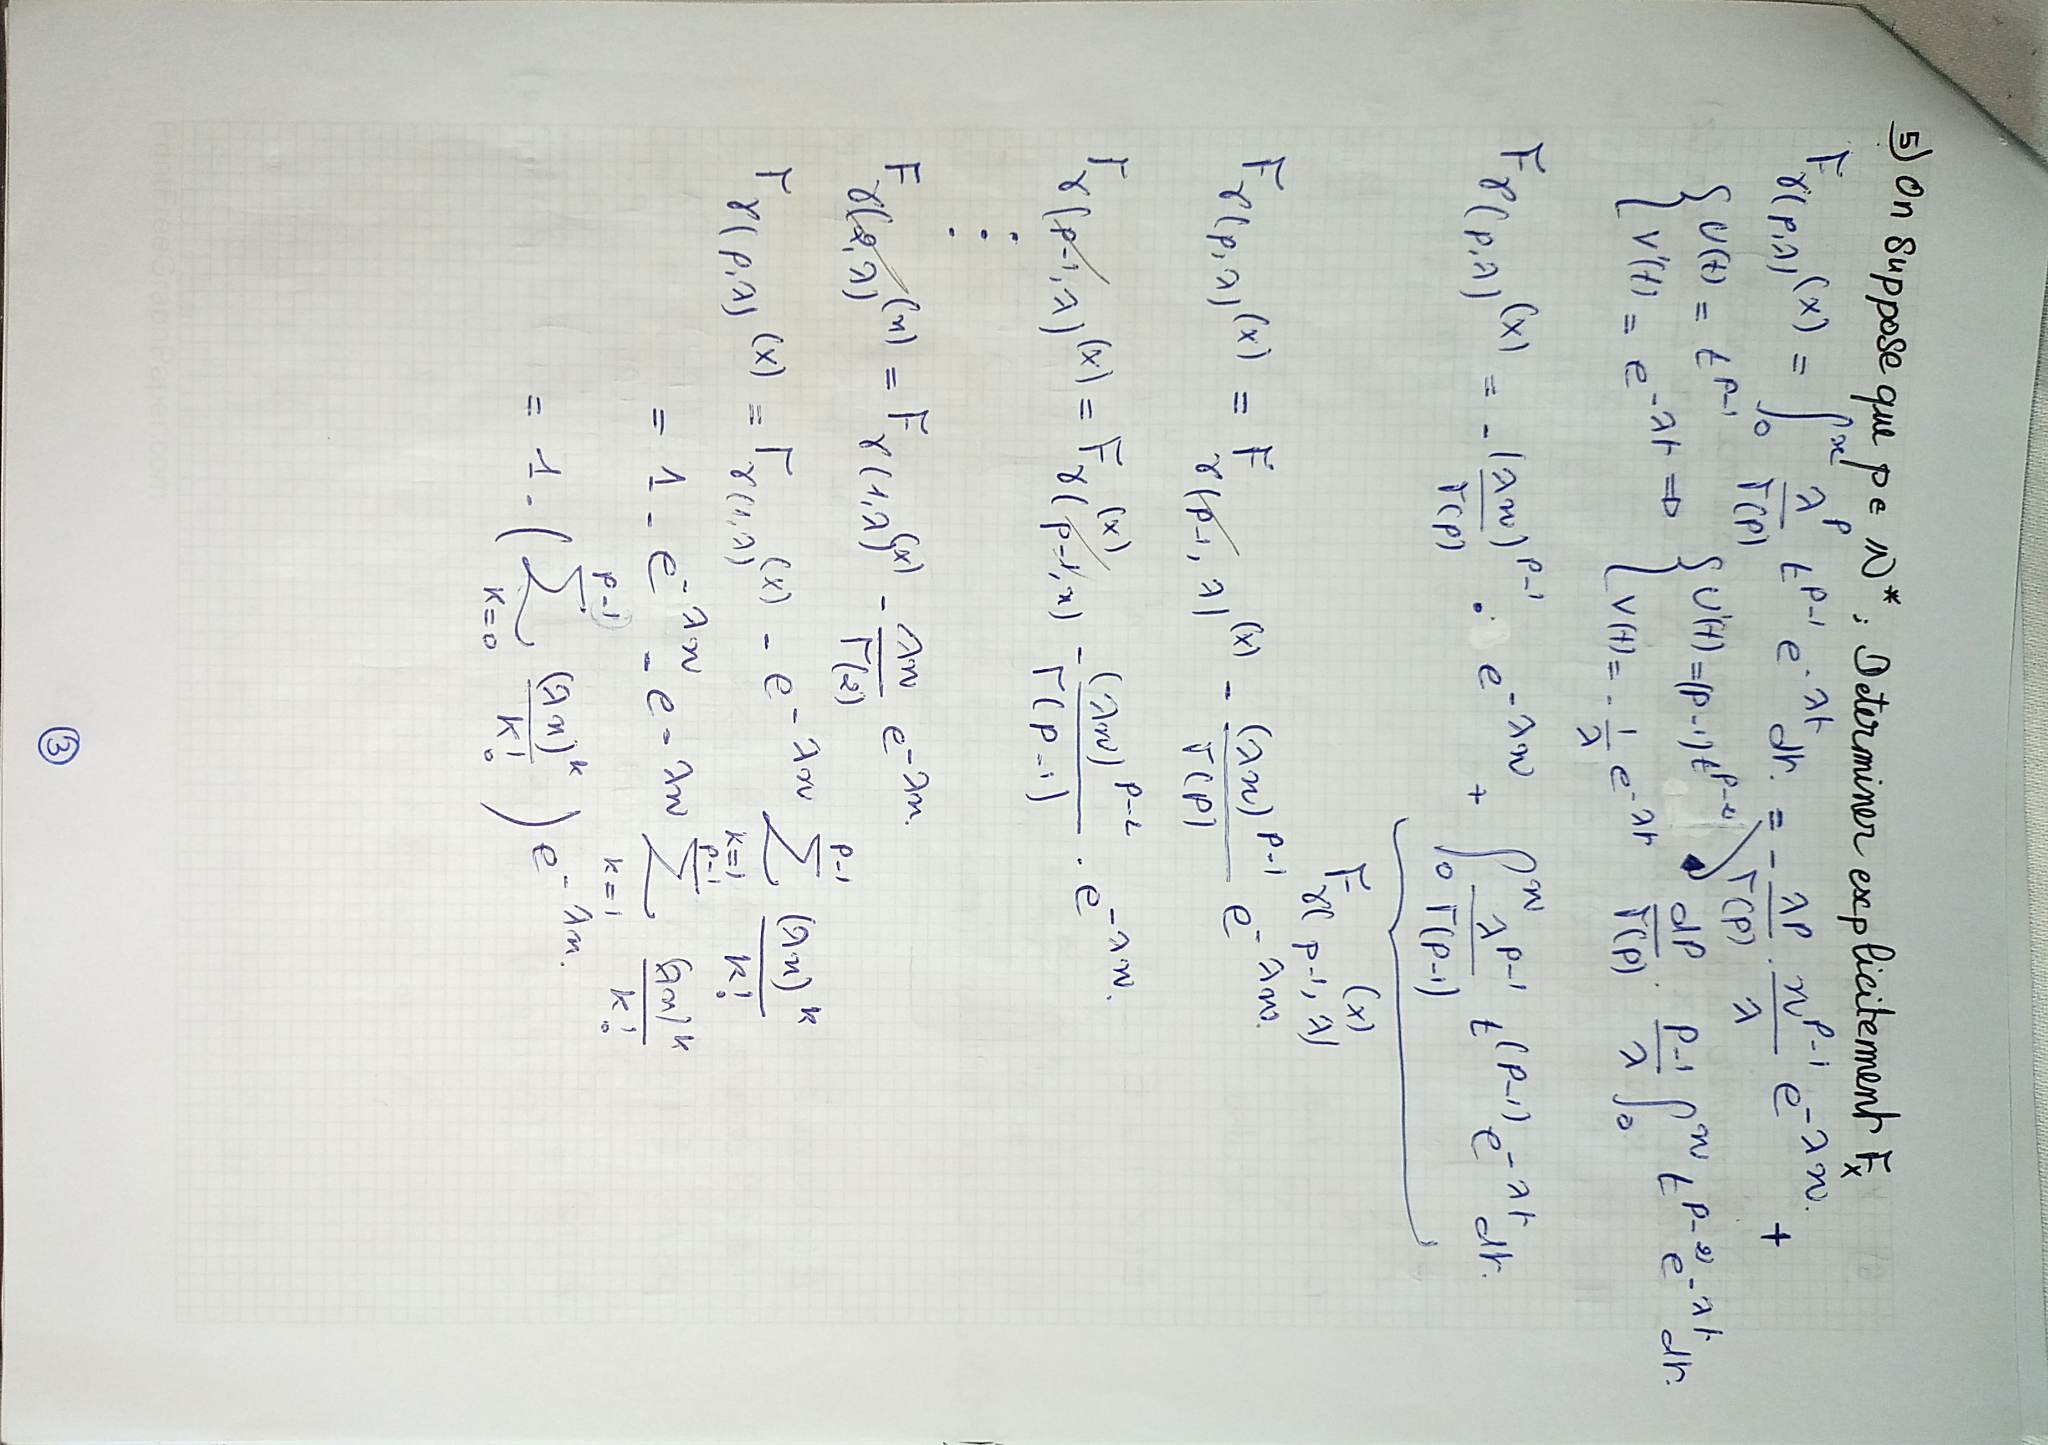 5) On Suppose que p ∈ ℕ*, Determiner explicitement F_X
F_γ(p,λ)(x) = ∫_0^x λ^p/Γ(p) t^{p-1} e^{-λt} dt. = - λ^p/Γ(p) . x^{p-1}/λ e^{-λx}. +
{ U(t) = t^{p-1} ⇒ { U'(t) = (p-1) t^{p-2}
{ V'(t) = e^{-λt} { V(t) = - 1/λ e^{-λt} λ^p/Γ(p) . p-1/λ ∫_0^x t^{p-2} e^{-λt} dt.
F_γ(p,λ)(x) = - (λx)^{p-1}/Γ(p) . e^{-λx} + ∫_0^x λ^{p-1}/Γ(p-1) t^{(p-1)} e^{-λt} dt.
F_γ(p-1,λ)(x)
F_γ(p,λ)(x) = F_γ(p-1,λ)(x) - (λx)^{p-1}/Γ(p) e^{-λx}.
F_γ(p-1,λ)(x) = F_γ(p-1,x)(x) - (λx)^{p-2}/Γ(p-1) . e^{-λx}.
⋮
F_γ(2,λ)(x) = F_γ(1,λ)(x) - λx/Γ(2) e^{-λx}.
F_γ(p,λ)(x) = F_γ(1,λ)(x) - e^{-λx} ∑_{k=1}^{p-1} (λx)^k/k!
= 1 - e^{-λx} - e^{-λx} ∑_{k=1}^{p-1} (λx)^k/k!
= 1 - ( ∑_{k=0}^{p-1} (λx)^k/k! ) e^{-λx}.
PrintFreeGraphPaper.com
3